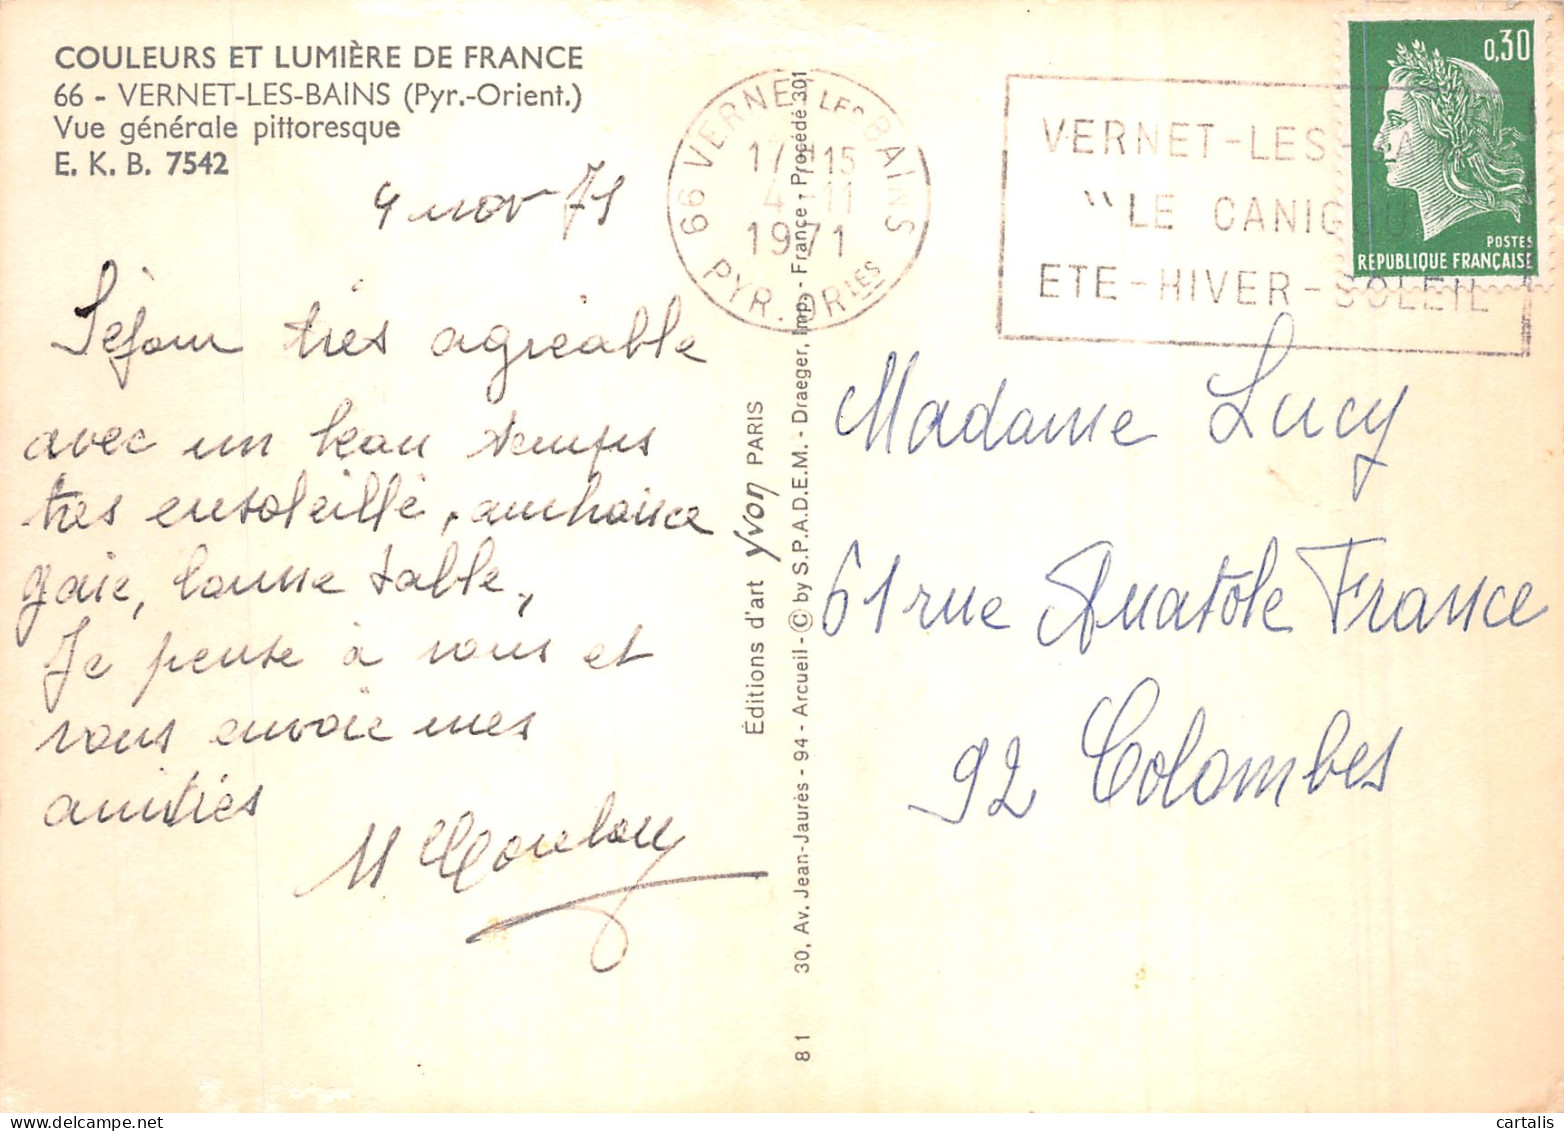 COULEURS ET LUMIÈRE DE FRANCE
66 - VERNET-LES-BAINS (Pyr.-Orient.)
Vue générale pittoresque
E. K. B. 7542
4 nov 71
Séjour très agréable
avec un beau temps
tres ensoleillé, ambiance
gaie, bonne table,
Je pense à vous et
vous envoie mes
amitiés
M
Éditions d'art Yvon PARIS
30, Av. Jean-Jaurès - 94 - Arcueil - © by S.P.A.D.E.M. - Draeger, Imp. - France - Procédé 301
81
66 VERNET LES BAINS
17H15
4-11
1971
PYR. ORLES
VERNET-LES-BA
"LE CANIGOU
ETE-HIVER-SOLEIL
0,30
POSTES
REPUBLIQUE FRANÇAISE
Madame Lucy
61 rue Anatole France
92 Colombes
cartalis